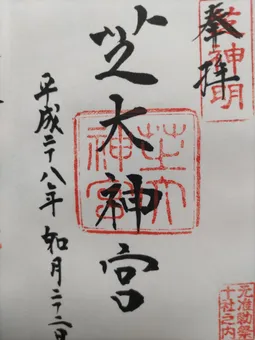 奉拝
芝神明
芝大神宮
芝大
神宮
平成二十八年 如月二十二日
元准勅祭
十社之内